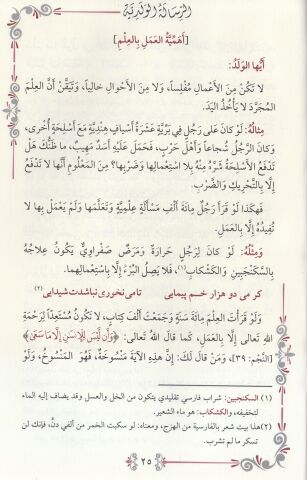 الرسالة الولدية
[أَهَمِّيَّةُ العَمَلِ بِالعِلْمِ]
أَيُّها الوَلَدُ:
لا تَكُنْ مِنَ الأَعْمالِ مُفْلِساً، وَلا مِنَ الأَحْوالِ خالِياً، وَتَيَقَّنْ أَنَّ العِلْمَ
المُجَرَّدَ لا يَأْخُذُ اليَدَ.
مِثالُهُ: لَوْ كانَ عَلى رَجُلٍ فِي بَرِّيَّةٍ عَشَرَةُ أَسْيافٍ هِنْدِيَّةٍ مَعَ أَسْلِحَةٍ أُخْرى،
وَكانَ الرَّجُلُ شُجاعاً وَأَهْلَ حَرْبٍ، فَحَمَلَ عَلَيْهِ أَسَدٌ مَهِيبٌ، ما ظَنُّكَ هَلْ
تَدْفَعُ الأَسْلِحَةُ شَرَّهُ مِنْهُ بِلا اسْتِعْمالِها وَضَرْبِها؟ مِنَ المَعْلُومِ أَنَّها لا تَدْفَعُ
إِلَّا بِالتَّحْرِيكِ وَالضَّرْبِ.
فَهكَذا لَوْ قَرَأَ رَجُلٌ مِائَةَ أَلْفِ مَسْأَلَةٍ عِلْمِيَّةٍ وَتَعَلَّمَها وَلَمْ يَعْمَلْ بِها لا
تُفِيدُهُ إِلَّا بِالعَمَلِ.
وَمِثْلُهُ: لَوْ كانَ لِرَجُلٍ حَرارَةٌ وَمَرَضٌ صَفْراوِيٌّ يَكُونُ عِلاجُهُ
بِالسَّكَنْجَبِينِ وَالكَشْكابِ(١)، فَلا يَصِلُ البُرْءُ إِلَّا بِاسْتِعْمالِهِما.
كر مي دو هزار خم پيمايي تامي نخوري نباشدت شيدايي (٢)
وَلَوْ قَرَأْتَ العِلْمَ مِائَةَ سَنَةٍ وَجَمَعْتَ أَلْفَ كِتابٍ، لا تَكُونُ مُسْتَعِدّاً لِرَحْمَةِ
اللهِ تَعالى إِلَّا بِالعَمَلِ، كَما قالَ اللهُ تَعالى: ﴿وَأَن لَّيْسَ لِلْإِنسَٰنِ إِلَّا مَا سَعَىٰ﴾
[النَّجْم: ٣٩]، وَمَنْ قالَ لَكَ: إِنَّ هذِهِ الآيَةَ مَنْسُوخَةٌ، فَهُوَ المَنْسُوخُ، وَلَوْ
(١) السكنجبين: شراب فارسي تقليدي يتكون من الخل والعسل وقد يضاف إليه الماء
لتخفيفه، والكشكاب: هو ماء الشعير.
(٢) هذا بيت شعر بالفارسية من الهزج، ومعناه: لو سكبت الخمر من ألفي دنّ، فإنك لن
تسكر ما لم تشرب.
٢٥